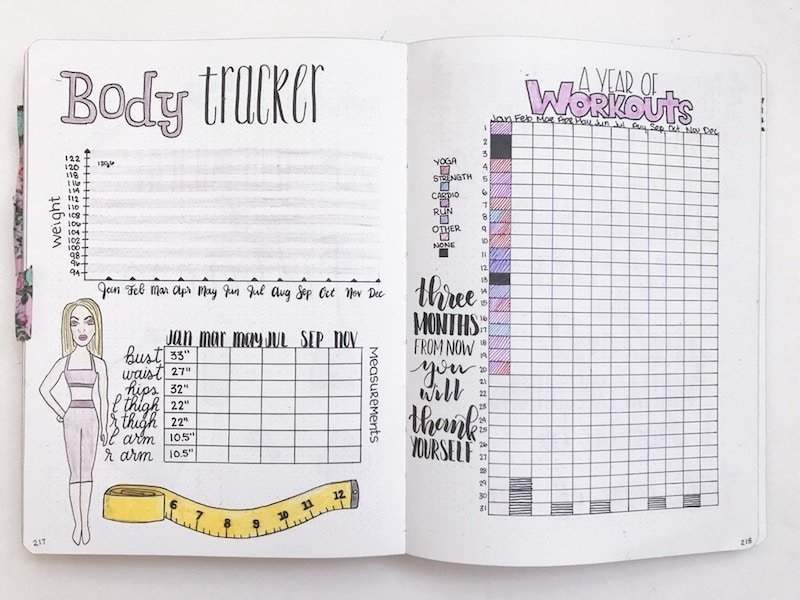 Body tracker
weight
122
120
118
116
114
112
110
108
106
104
102
100
98
96
94
120.6
Jan Feb Mar Apr May Jun Jul Aug Sep Oct Nov Dec
JAN mar may JUL SEP NOV
bust 33"
waist 27"
hips 32"
l thigh 22"
r thigh 22"
l arm 10.5"
r arm 10.5"
Measurements
6 7 8 9 10 11 12
217
A YEAR OF
WORKOUTS
Jan Feb Mar Apr May Jun Jul Aug Sep Oct Nov Dec
1
2
3
4
5
6
7
8
9
10
11
12
13
14
15
16
17
18
19
20
21
22
23
24
25
26
27
28
29
30
31
YOGA
STRENGTH
CARDIO
RUN
OTHER
NONE
three
MONTHS
FROM NOW
you
will
thank
YOURSELF
218